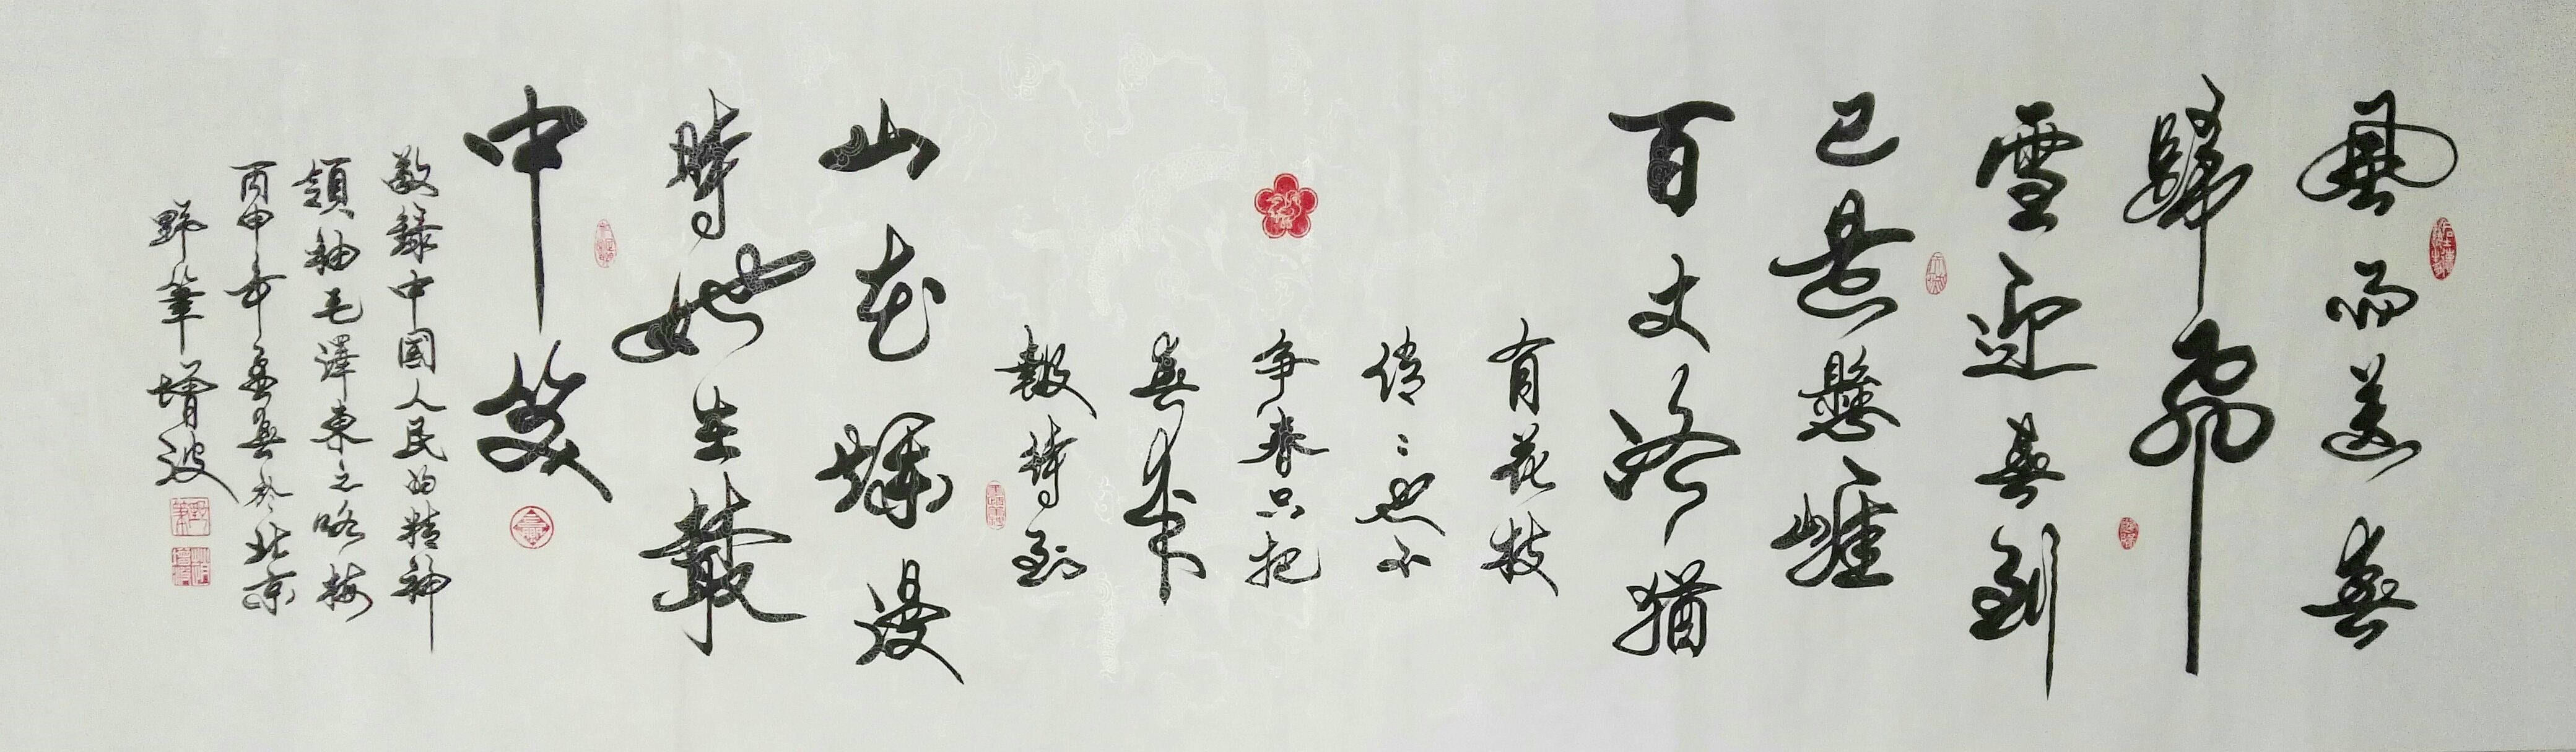 風雨送春
歸飛
雪迎春到
已是懸崖
百丈冰猶
有花枝
俏〻也不
争春只把
春來
報待到
山花爛漫
時她在叢
中笑
敬錄中國人民的精神
領袖毛澤東之咏梅
丙申年孟夏於北京
野筆增波